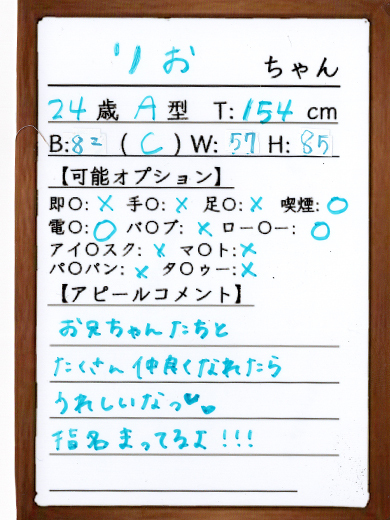 りお ちゃん
24歳 A型 T:154 cm
B:82 (C) W:57 H:85
【可能オプション】
即〇:× 手〇:× 足〇:× 喫煙:〇
電〇:〇 バ〇ブ:× ロー〇ー:〇
アイ〇スク:× マ〇ト:×
パ〇パン:× タ〇ゥー:×
【アピールコメント】
お兄ちゃんたちと
たくさん仲良くなれたら
うれしいなっ♥♥
指名まってるよ!!!